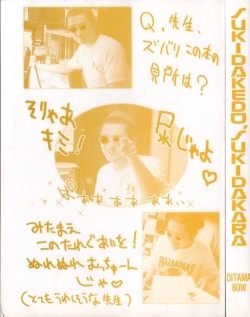 Q、先生、
ズバリこの本の
見所は？
そりゃあ
キミ！
尿じゃよ♡
みたまえ
このたれぐあいを！
ぬれぬれむっちゅーん
じゃ♡
(とてもうれしそうな先生)
SUKIDAKEDO SUKIDAKARA
DITAMA
BOW